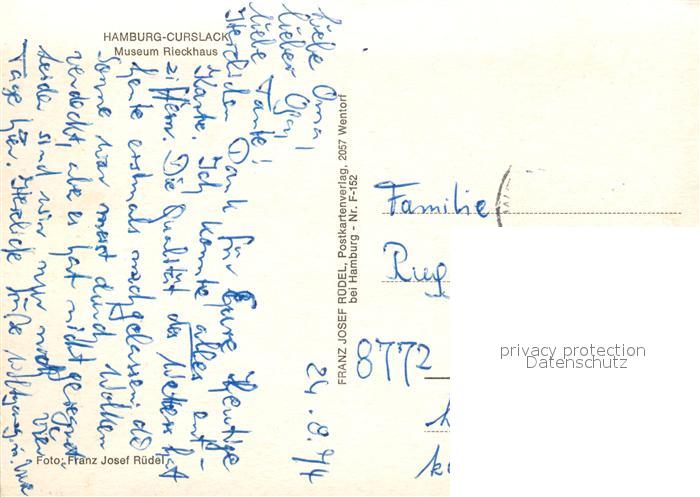 HAMBURG-CURSLACK
Museum Rieckhaus
24.8.74
Liebe Oma,
lieber Opa,
liebe Tante!
Herzlichen Dank für Eure heutige
Karte. Ich konnte alles ent-
ziffern. Die Qualität des Wetters hat
heute erstmals nachgelassen, die
Sonne war meist durch Wolken
verdeckt, aber es hat nicht geregnet.
Leider sind wir nur noch
Tage hier. Herzliche Grüße Wolfgang
Foto: Franz Josef Rüdel
FRANZ JOSEF RÜDEL, Postkartenverlag, 2057 Wentorf
bei Hamburg - Nr. F-152
Familie
8772
privacy protection
Datenschutz